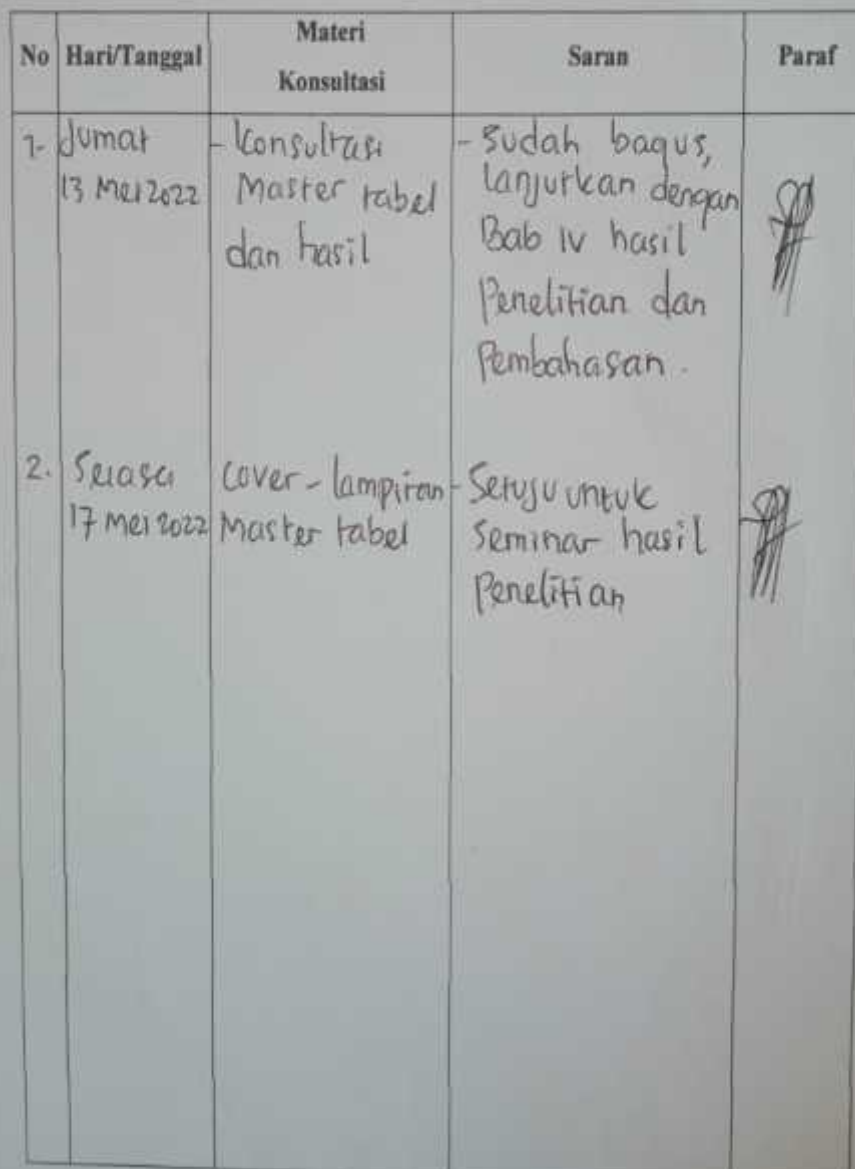 No Hari/Tanggal Materi Konsultasi Saran Paraf
1. Jumat
13 Mei 2022
- Konsultasi
Master tabel
dan hasil
- Sudah bagus,
lanjutkan dengan
Bab IV hasil
Penelitian dan
Pembahasan.
2. Selasa
17 Mei 2022
Cover - lampiran
Master tabel
- Setuju untuk
Seminar hasil
Penelitian